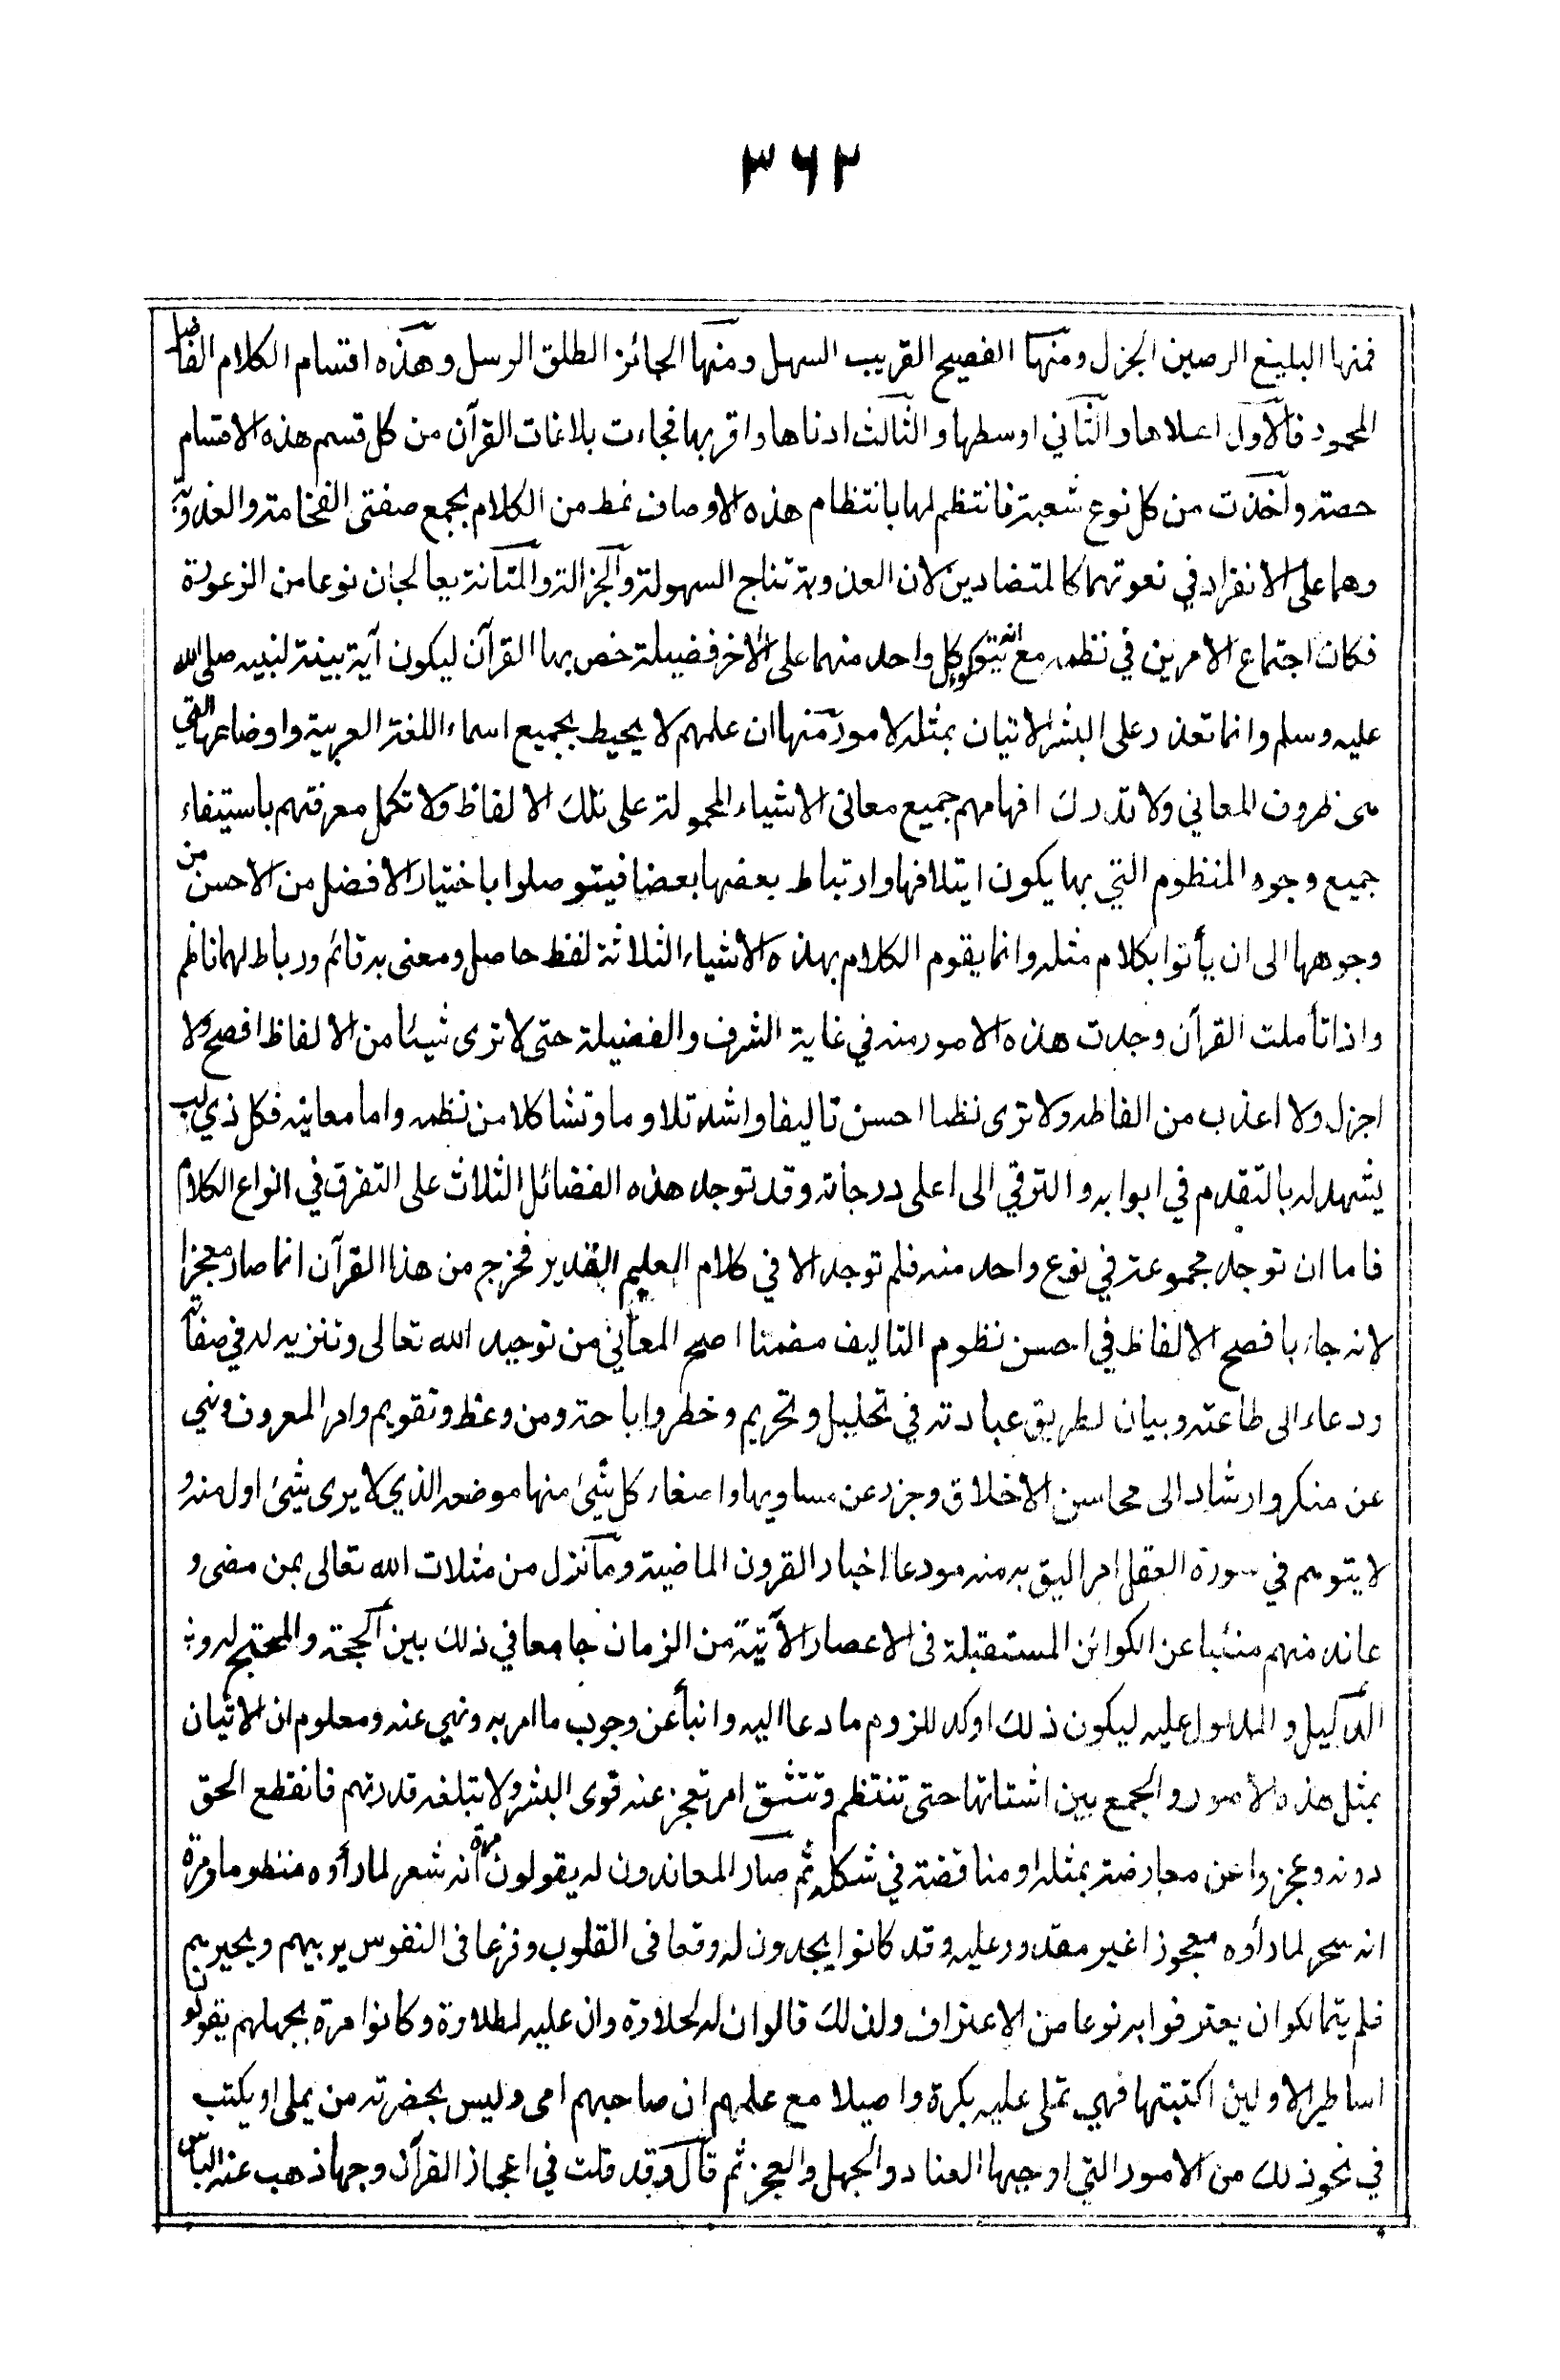 ٣٦٢
فمنها البليغ الرصين الجزل ومنها الفصيح القريب السهل ومنها الجائز الطلق الرسل وهذه اقسام الكلام الفاضل
المحمود فالاول اعلاها والثاني اوسطها والثالث ادناها واقربها فجاءت بلاغات القرآن من كل قسم هذه الاقسام
حصة واخذت من كل نوع شعبة فانتظم لها بانتظام هذه الاوصاف نمط من الكلام يجمع صفتى الفخامة والعذوبة
وهما على الانفراد في نعوتهما كالمتضادين لان العذوبة نتاج السهولة والجزالة والمتانة يعالجان نوعا من الزعورة
فكان اجتماع الامرين في نظمه مع كل واحد منهما على الآخر فضيلة خص بها القرآن ليكون آية بينة لنبيه صلى الله
عليه وسلم وانما تعذر على البشر الاتيان بمثله لامور منها ان علمهم لا يحيط بجميع اسماء اللغة العربية واوضاعها التي
هى ظروف المعاني ولا تدرك افهامهم جميع معانى الاشياء المحمولة على تلك الالفاظ ولا تكمل معرفتهم باستيفاء
جميع وجوه المنظوم التي بها يكون ايتلافها وارتباط بعضها بعضا فيتوصلوا باختيار الافضل من الاحسن من
وجوهها الى ان يأتوا بكلام مثله وانما يقوم الكلام بهذه الاشياء الثلاثة لفظ حاصل ومعنى به قائم ورباط لهما ناظم
واذا تأملت القرآن وجدت هذه الامور منه في غاية الشرف والفضيلة حتى لا ترى شيئا من الالفاظ افصح ولا
اجزل ولا اعذب من الفاظه ولا ترى نظما احسن تاليفا واشد تلاوما وتشاكلا من نظمه واما معانيه فكل ذي لب
يشهد له بالتقدم في ابوابه والترقي الى اعلى درجاته وقد توجد هذه الفضائل الثلاث على التفرق في انواع الكلام
فاما ان توجد مجموعة في نوع واحد منه فلم توجد الا في كلام العليم القدير فخرج من هذا القرآن انما صار معجزا
لانه جاء بافصح الالفاظ في احسن نظوم التاليف مضمنا اصح المعاني من توحيد الله تعالى وتنزيه له في صفاته
ودعاء الى طاعته وبيان لطريق عبادته في تحليل وتحريم وخطر واباحة ومن وعظ وتقويم وامر المعروف ونهي
عن منكر وارشاد الى محاسن الاخلاق وجزر عن مساويها واضعا كل شئ منها موضعه الذي لا يرى شئ اولى منه و
لا يتوهم في صورة العقل امر اليق به منه مودعا اخبار القرون الماضية وما نزل من مثلات الله تعالى بمن مضى و
عاند منهم منئبا عن الكوائن المستقبلة فى الاعصار الآتية من الزمان جامعا في ذلك بين الحجة والمحتج له وبين
الدليل والمدلول عليه ليكون ذلك اوكد للزوم ما دعا اليه وانبأ عن وجوب ما امر به ونهي عنه ومعلوم ان الاتيان
بمثل هذه الامور والجمع بين اشتاتها حتى تنتظم وتتسق امر تعجز عنه قوى البشر ولا تبلغه قدرتهم فانقطع الحق
دونه وعجزوا عن معارضته بمثله او مناقضة في شكله ثم صار المعاندون له يقولون مرة انه شعر لما رأوه منظوما ومرة
انه سحر لما رأوه معجوزا غير مقدور عليه وقد كانوا يجدون له وقعا فى القلوب وفزعا فى النفوس يربيهم ويحيرهم
فلم يتمالكوا ن يعترفوا به نوعا من الاعتراف ولذلك قالوا ان له لحلاوة وان عليه لطلاوة وكانوا مرة بجهلهم يقولو
اساطير الاولين اكتبتها فهي تملى عليه بكرة واصيلا مع علمهم ان صاحبهم امى وليس بحضرته من يملى او يكتب
في نحو ذلك من الامور التي اوجبها العناد والجهل والعجز ثم قال وقد قلت في اعجاز القرآن وجها ذهب عنه الناس